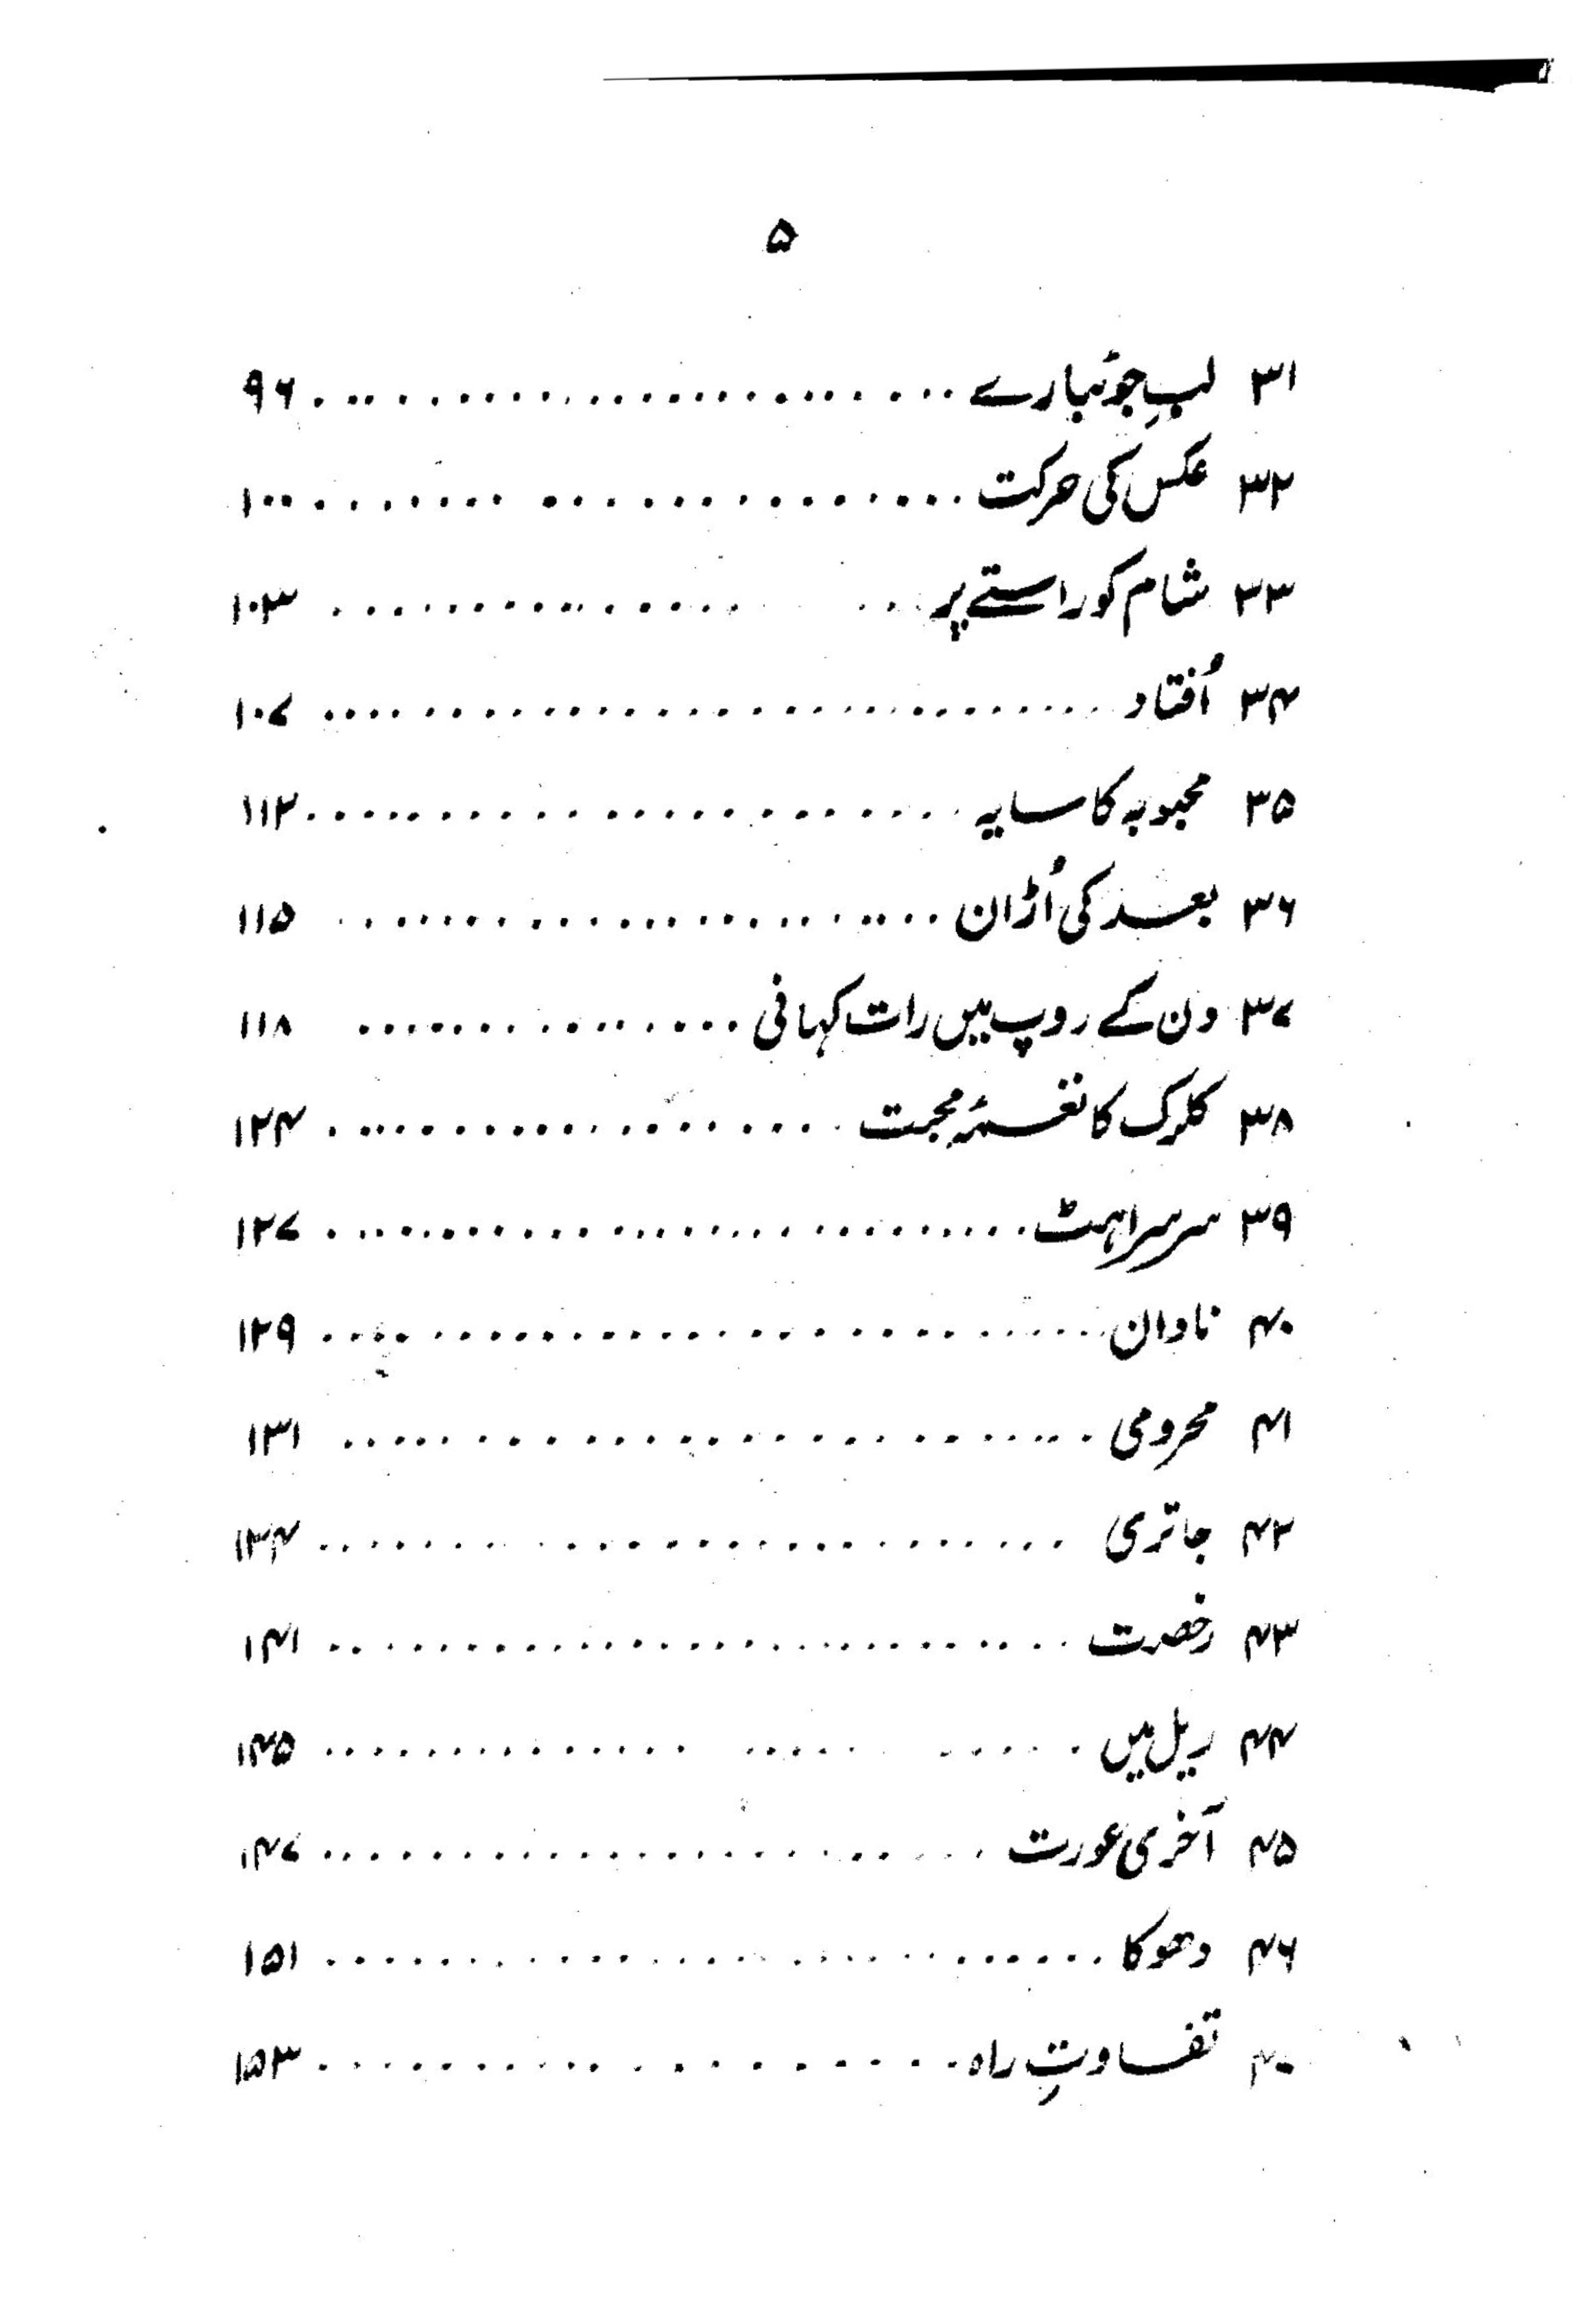 ۵
۳۱ لبِ جوئبارے ۹۶
۳۲ عکس کی حرکت ۱۰۰
۳۳ شام کو راستے پر ۱۰۳
۳۴ اُفتاد ۱۰۷
۳۵ محبوبہ کا سایہ ۱۱۲
۳۶ بعد کی اُڑان ۱۱۵
۳۷ دن کے روپ میں رات کہانی ۱۱۸
۳۸ کلرک کا نغمۂ محبت ۱۲۴
۳۹ سرسراہٹ ۱۲۷
۴۰ نادان ۱۲۹
۴۱ محرومی ۱۳۱
۴۲ جاتری ۱۳۴
۴۳ رخصت ۱۴۱
۴۴ ریل میں ۱۴۵
۴۵ آخری عورت ۱۴۷
۴۶ دھوکا ۱۵۱
تفاوتِ راہ ۱۵۳